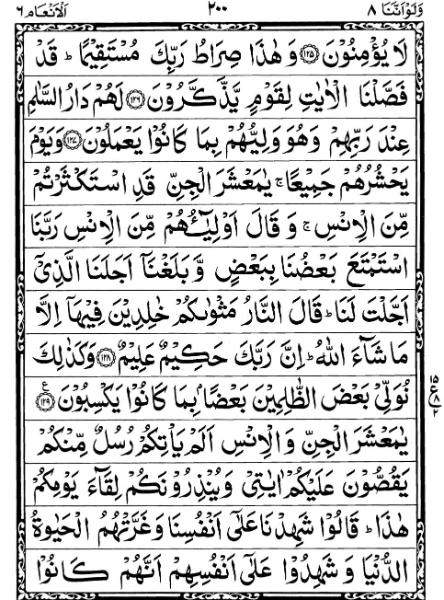 وَلَوْ اَنَّنَا ٨ ٢٠٠ اَلْاَنْعَام ٦
لَا يُؤْمِنُوْنَ ﴿١٢٥﴾ وَ هٰذَا صِرَاطُ رَبِّكَ مُسْتَقِيْمًا ؕ قَدْ
فَصَّلْنَا الْاٰيٰتِ لِقَوْمٍ يَّذَّكَّرُوْنَ ﴿١٢٦﴾ لَهُمْ دَارُ السَّلٰمِ
عِنْدَ رَبِّهِمْ وَهُوَ وَلِيُّهُمْ بِمَا كَانُوْا يَعْمَلُوْنَ ﴿١٢٧﴾ وَيَوْمَ
يَحْشُرُهُمْ جَمِيْعًا ۚ يٰمَعْشَرَ الْجِنِّ قَدِ اسْتَكْثَرْتُمْ
مِّنَ الْاِنْسِ ۚ وَ قَالَ اَوْلِيٰٓـُٔهُمْ مِّنَ الْاِنْسِ رَبَّنَا
اسْتَمْتَعَ بَعْضُنَا بِبَعْضٍ وَّ بَلَغْنَاۤ اَجَلَنَا الَّذِيْۤ
اَجَّلْتَ لَنَا ؕ قَالَ النَّارُ مَثْوٰىكُمْ خٰلِدِيْنَ فِيْهَاۤ اِلَّا
مَا شَآءَ اللّٰهُ ؕ اِنَّ رَبَّكَ حَكِيْمٌ عَلِيْمٌ ﴿١٢٨﴾ وَكَذٰلِكَ
نُوَلِّيْ بَعْضَ الظّٰلِمِيْنَ بَعْضًۢا بِمَا كَانُوْا يَكْسِبُوْنَ ﴿١٢٩﴾ ع
١٥ ع ٨ ٢
يٰمَعْشَرَ الْجِنِّ وَ الْاِنْسِ اَلَمْ يَاْتِكُمْ رُسُلٌ مِّنْكُمْ
يَقُصُّوْنَ عَلَيْكُمْ اٰيٰتِيْ وَ يُنْذِرُوْنَكُمْ لِقَآءَ يَوْمِكُمْ
هٰذَا ؕ قَالُوْا شَهِدْنَا عَلٰۤى اَنْفُسِنَا وَ غَرَّتْهُمُ الْحَيٰوةُ
الدُّنْيَا وَ شَهِدُوْا عَلٰۤى اَنْفُسِهِمْ اَنَّهُمْ كَانُوْا